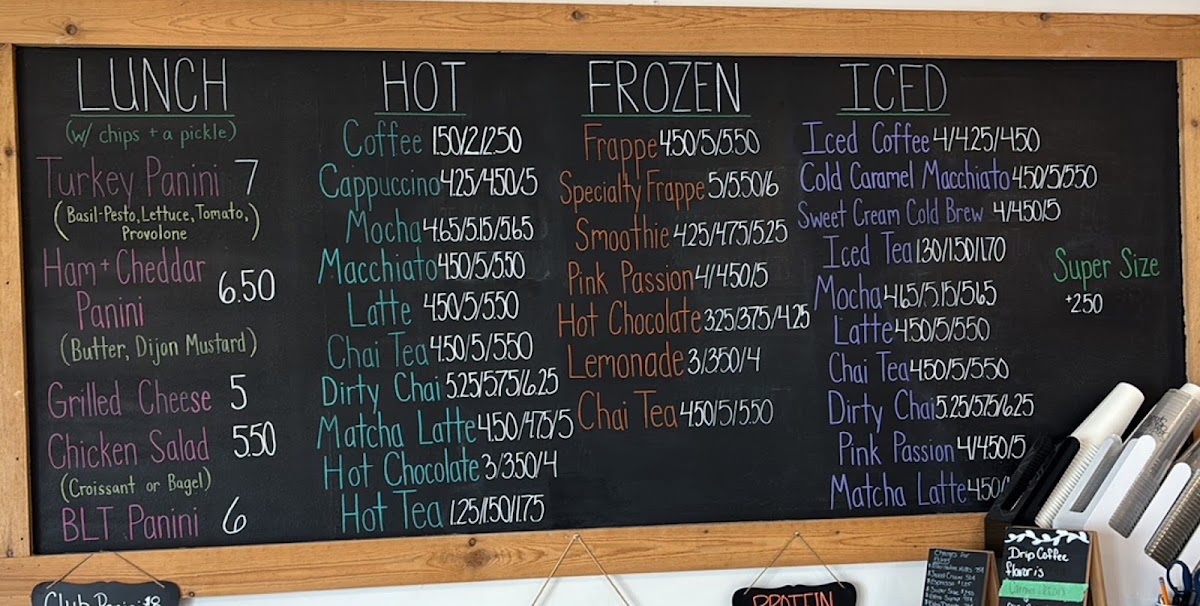 LUNCH
(w/ chips + a pickle)
Turkey Panini 7
(Basil-Pesto, Lettuce, Tomato,
Provolone)
Ham + Cheddar
Panini 6.50
(Butter, Dijon Mustard)
Grilled Cheese 5
Chicken Salad 5.50
(Croissant or Bagel)
BLT Panini 6
HOT
Coffee 1.50/2/2.50
Cappuccino 4.25/4.50/5
Mocha 4.65/5.15/5.65
Macchiato 4.50/5/5.50
Latte 4.50/5/5.50
Chai Tea 4.50/5/5.50
Dirty Chai 5.25/5.75/6.25
Matcha Latte 4.50/4.75/5
Hot Chocolate 3/3.50/4
Hot Tea 1.25/1.50/1.75
FROZEN
Frappe 4.50/5/5.50
Specialty Frappe 5/5.50/6
Smoothie 4.25/4.75/5.25
Pink Passion 4/4.50/5
Hot Chocolate 3.25/3.75/4.25
Lemonade 3/3.50/4
Chai Tea 4.50/5/5.50
ICED
Iced Coffee 4/4.25/4.50
Cold Caramel Macchiato 4.50/5/5.50
Sweet Cream Cold Brew 4/4.50/5
Iced Tea 1.30/1.50/1.70
Mocha 4.65/5.15/5.65
Latte 4.50/5/5.50
Chai Tea 4.50/5/5.50
Dirty Chai 5.25/5.75/6.25
Pink Passion 4/4.50/5
Matcha Latte 4.50/
Super Size
+2.50
Club Panini $8
PROTEIN
Drip Coffee
flavor is